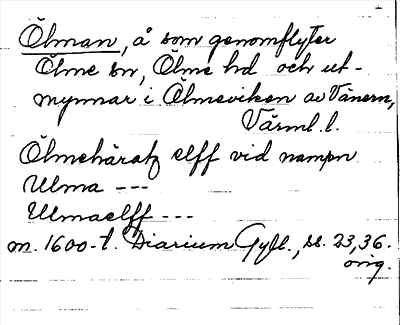 Ölman, å som genomflyter
Ölme sn, Ölme hd och ut-
mynnar i Ölmeviken av Vänern,
Värml. l.
Ölmehäratz elff vid nampn
Ulma ---
Ulmaelff ---
m. 1600-t. Diarium Gyll., bl. 23,36.
orig.